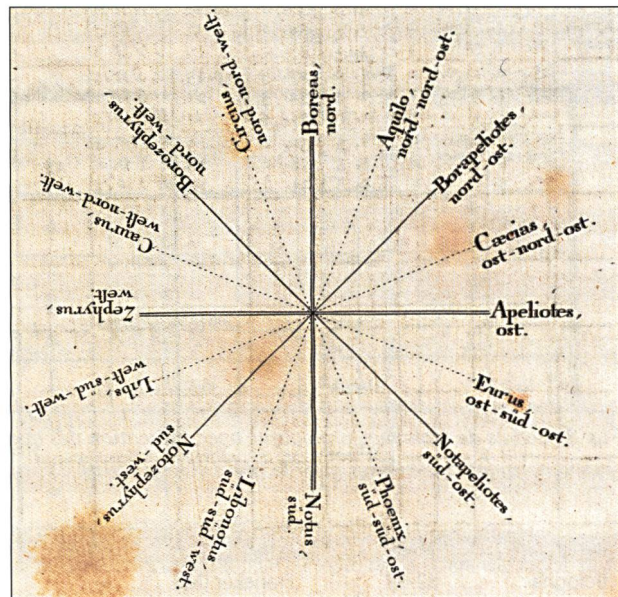 Boreas,
nord.
Aquilo,
nord-nord-ost.
Borapeliotes,
nord-ost.
Cæcias,
ost-nord-ost.
Apeliotes,
ost.
Eurus,
ost-süd-ost.
Notapeliotes,
süd-ost.
Phoenix,
süd-süd-ost.
Notus,
süd.
Libonotus,
süd-süd-west.
Notozephyrus,
süd-west.
Libs,
weſt-süd-weſt.
Zephyrus,
weſt.
Caurus,
weſt-nord-weſt.
Borozephyrus
nord-weſt.
Circius,
nord-nord-weſt.